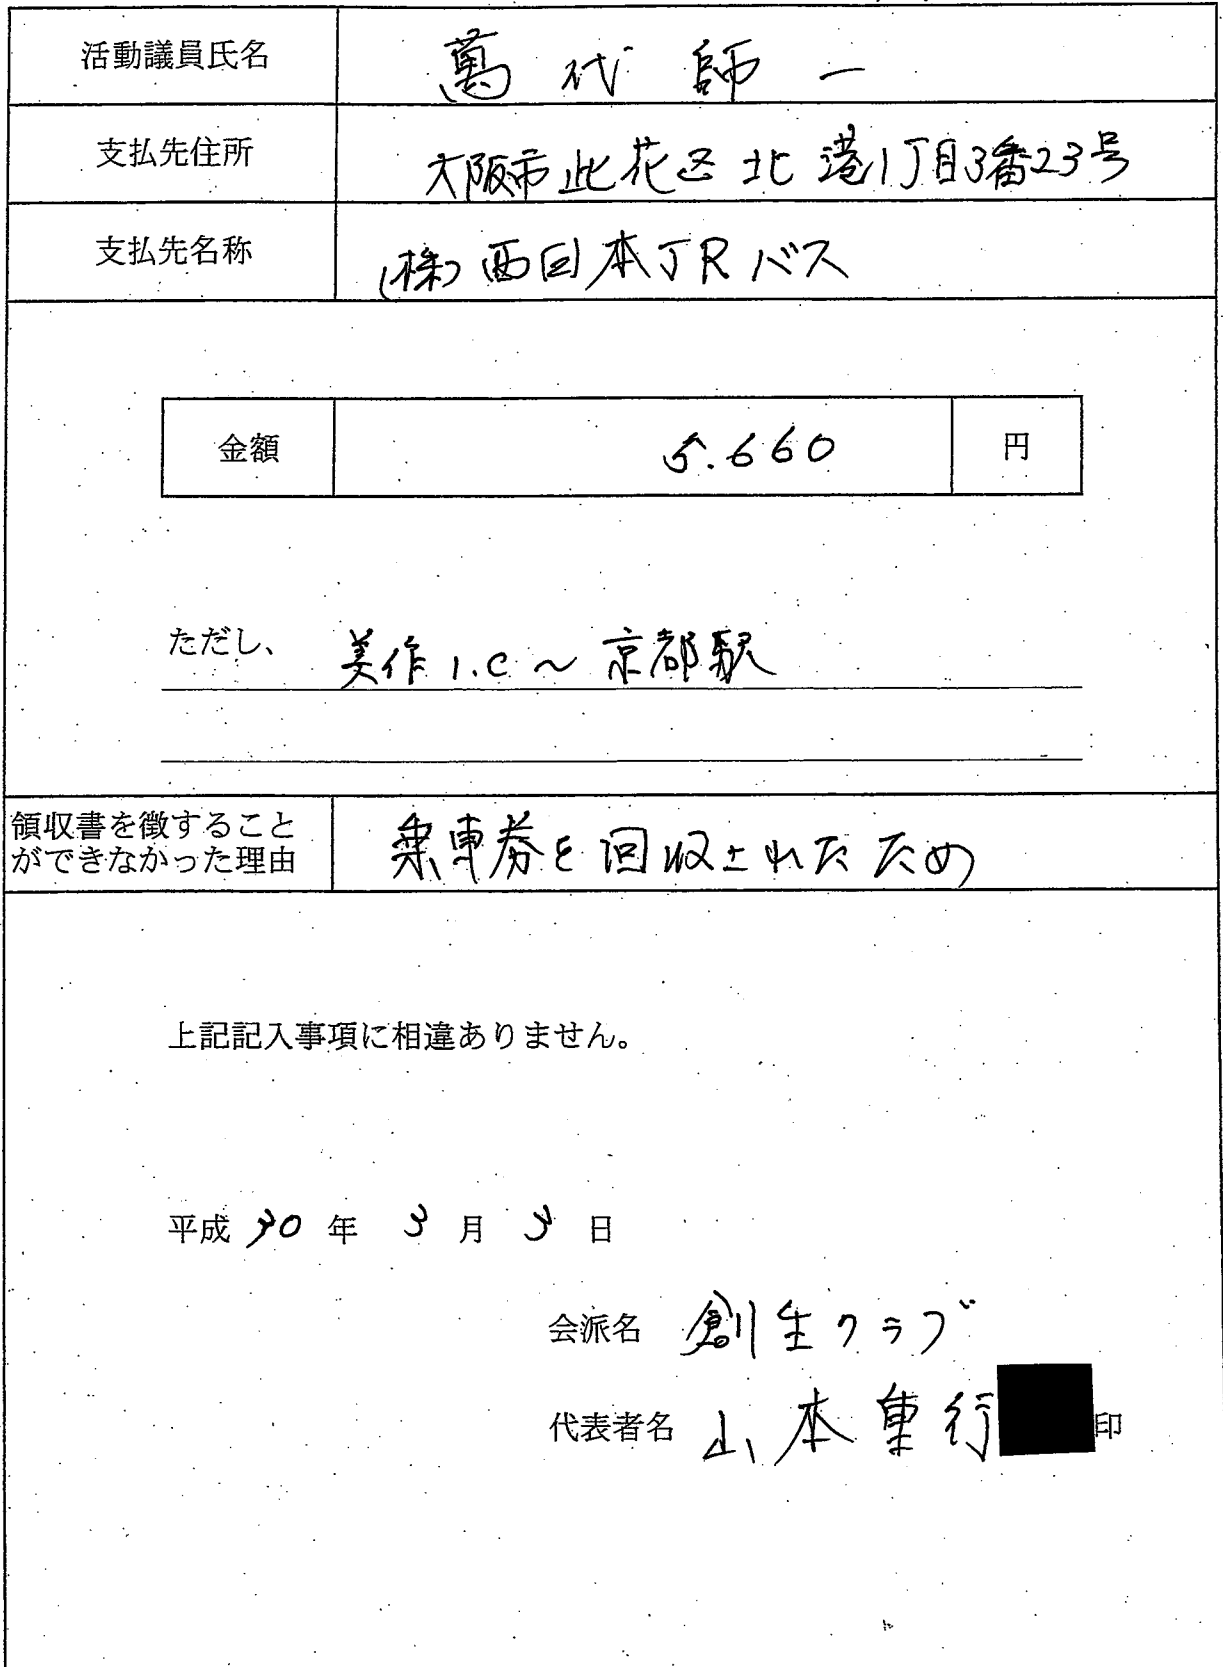 活動議員氏名 萬代師一
支払先住所 大阪市此花区北港1丁目3番23号
支払先名称 (株)西日本JRバス
金額 5.660 円
ただし、 美作I.C～京都駅
領収書を徴すること
ができなかった理由 乗車券を回収されたため
上記記入事項に相違ありません。
平成30年3月3日
会派名 創生クラブ
代表者名 山本重行 印